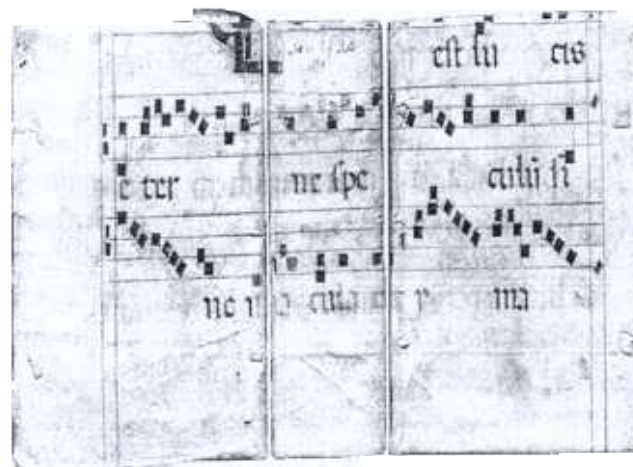 est lu cis
e ter ne spe culū si
ne ma cula et y ma